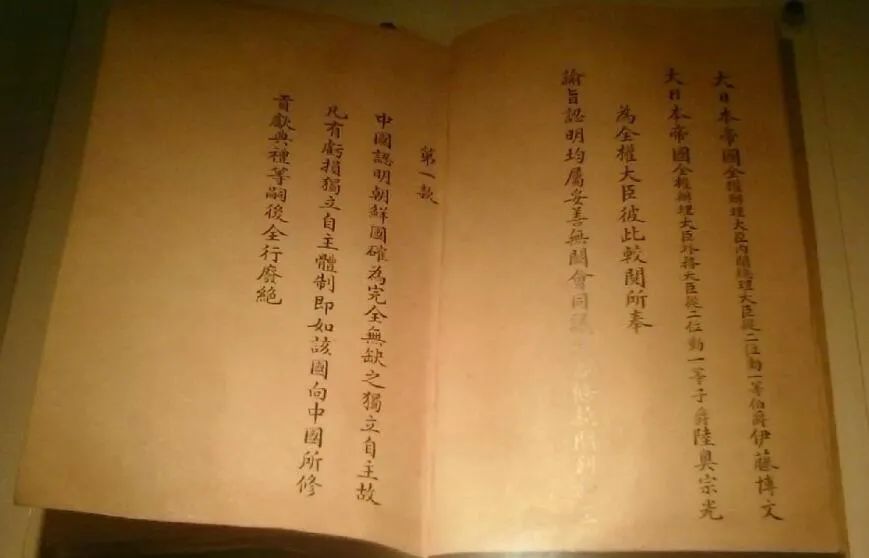 大日本帝國全權辦理大臣內閣總理大臣從二位勳一等伯爵伊藤博文
大日本帝國全權辦理大臣外務大臣從二位勳一等子爵陸奧宗光
為全權大臣彼此較閱所奉
諭旨認明均屬妥善無闕會同議條款開列
第一款
中國認明朝鮮國確為完全無缺之獨立自主故
凡有虧損獨立自主體制即如該國向中國所修
貢獻典禮等嗣後全行廢絕